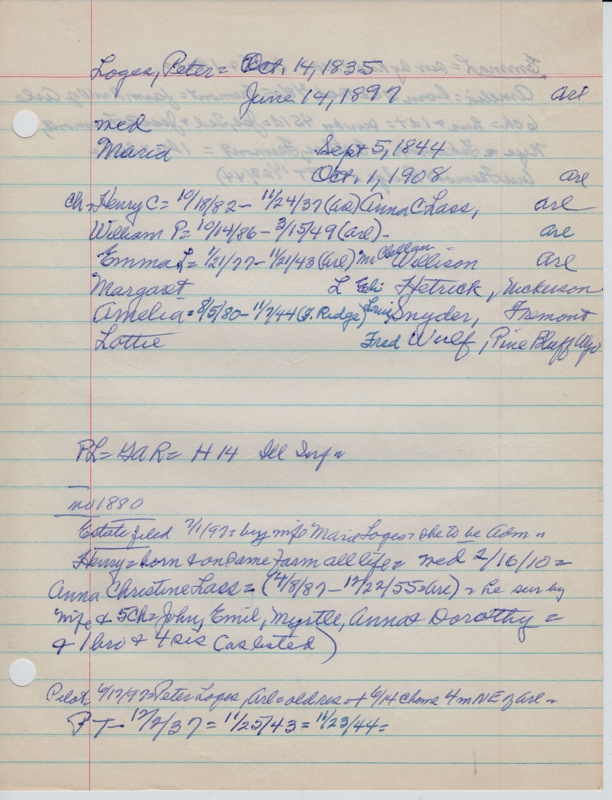 Loges, Peter = Oct. 14, 1835
June 14, 1897 arl
med
Maria Sept 5, 1844
Oct. 1, 1908 arl
Ch = Henry C = 10/18/82 - 11/24/37 (arl) Anna C Lass, arl
William P = 10/14/86 - 3/15/49 (arl) - arl
Emma L = 1/21/77 - 11/21/43 (arl) McClellan Willison arl
Margaret L Eli Hetrick, Nickerson
Amelia = 8/5/80 - 11/7/44 (F. Ridge) Louis Snyder, Fremont
Lottie Fred Wulf, Pine Bluff Wyo
PL = GAR = H 14 Ill Inf =
no 1880
Estate filed 7/1/97 = by wife Maria Loges = she to be Adm =
Henry = born & on same farm all life = med 2/16/10 =
Anna Christine Lass = (4/8/87 - 12/22/55 = arl) = he sur by
wife & 5 Ch = John, Emil, Myrtle, Anna & Dorothy =
& 1 bro & 4 sis (as listed)
Pilot 6/17/97 = Peter Loges, arl = old res = + 6/14 @ home 4 m NE of arl =
P T - 12/2/37 = 11/25/43 = 11/23/44 =